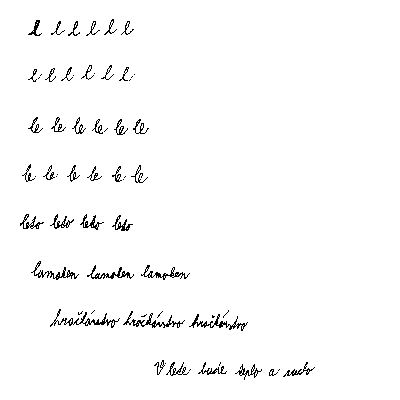 l l l l l l
l l l l l l
le le le le le le
le le le le le le
leto leto leto leto
lamohen lamohen lamohen
hračkárstvo hračkárstvo hračkárstvo
V lete bude teplo a